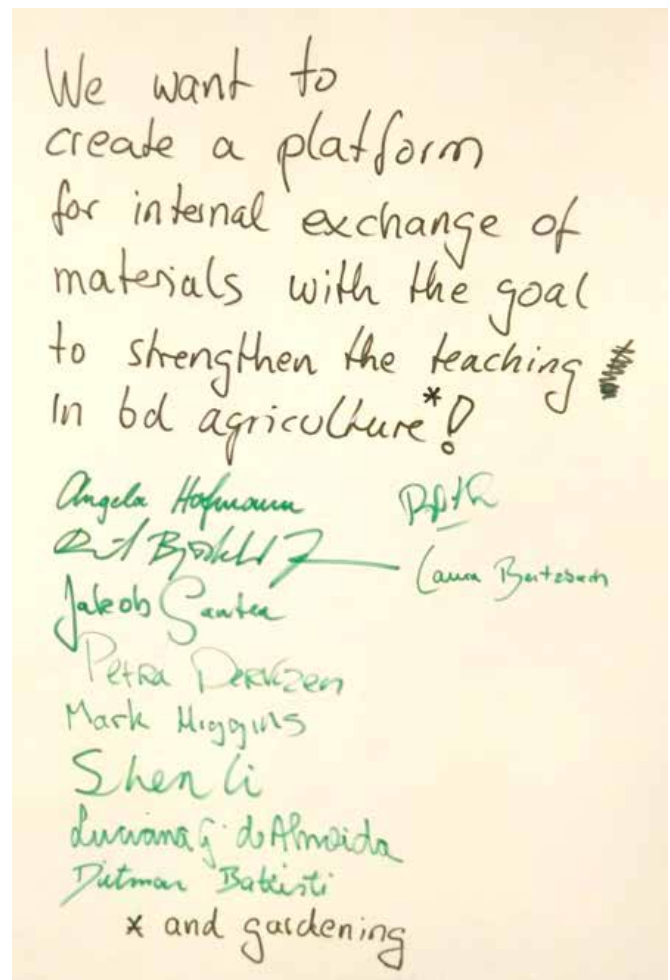 We want to
create a platform
for internal exchange of
materials with the goal
to strengthen the teaching
In bd agriculture*!
Angela Hofmann
Laura
Jakob
Petra Derkzen
Mark Higgins
Shen Li
Luciana G. de Almeida
Dietmar Battisti
* and gardening